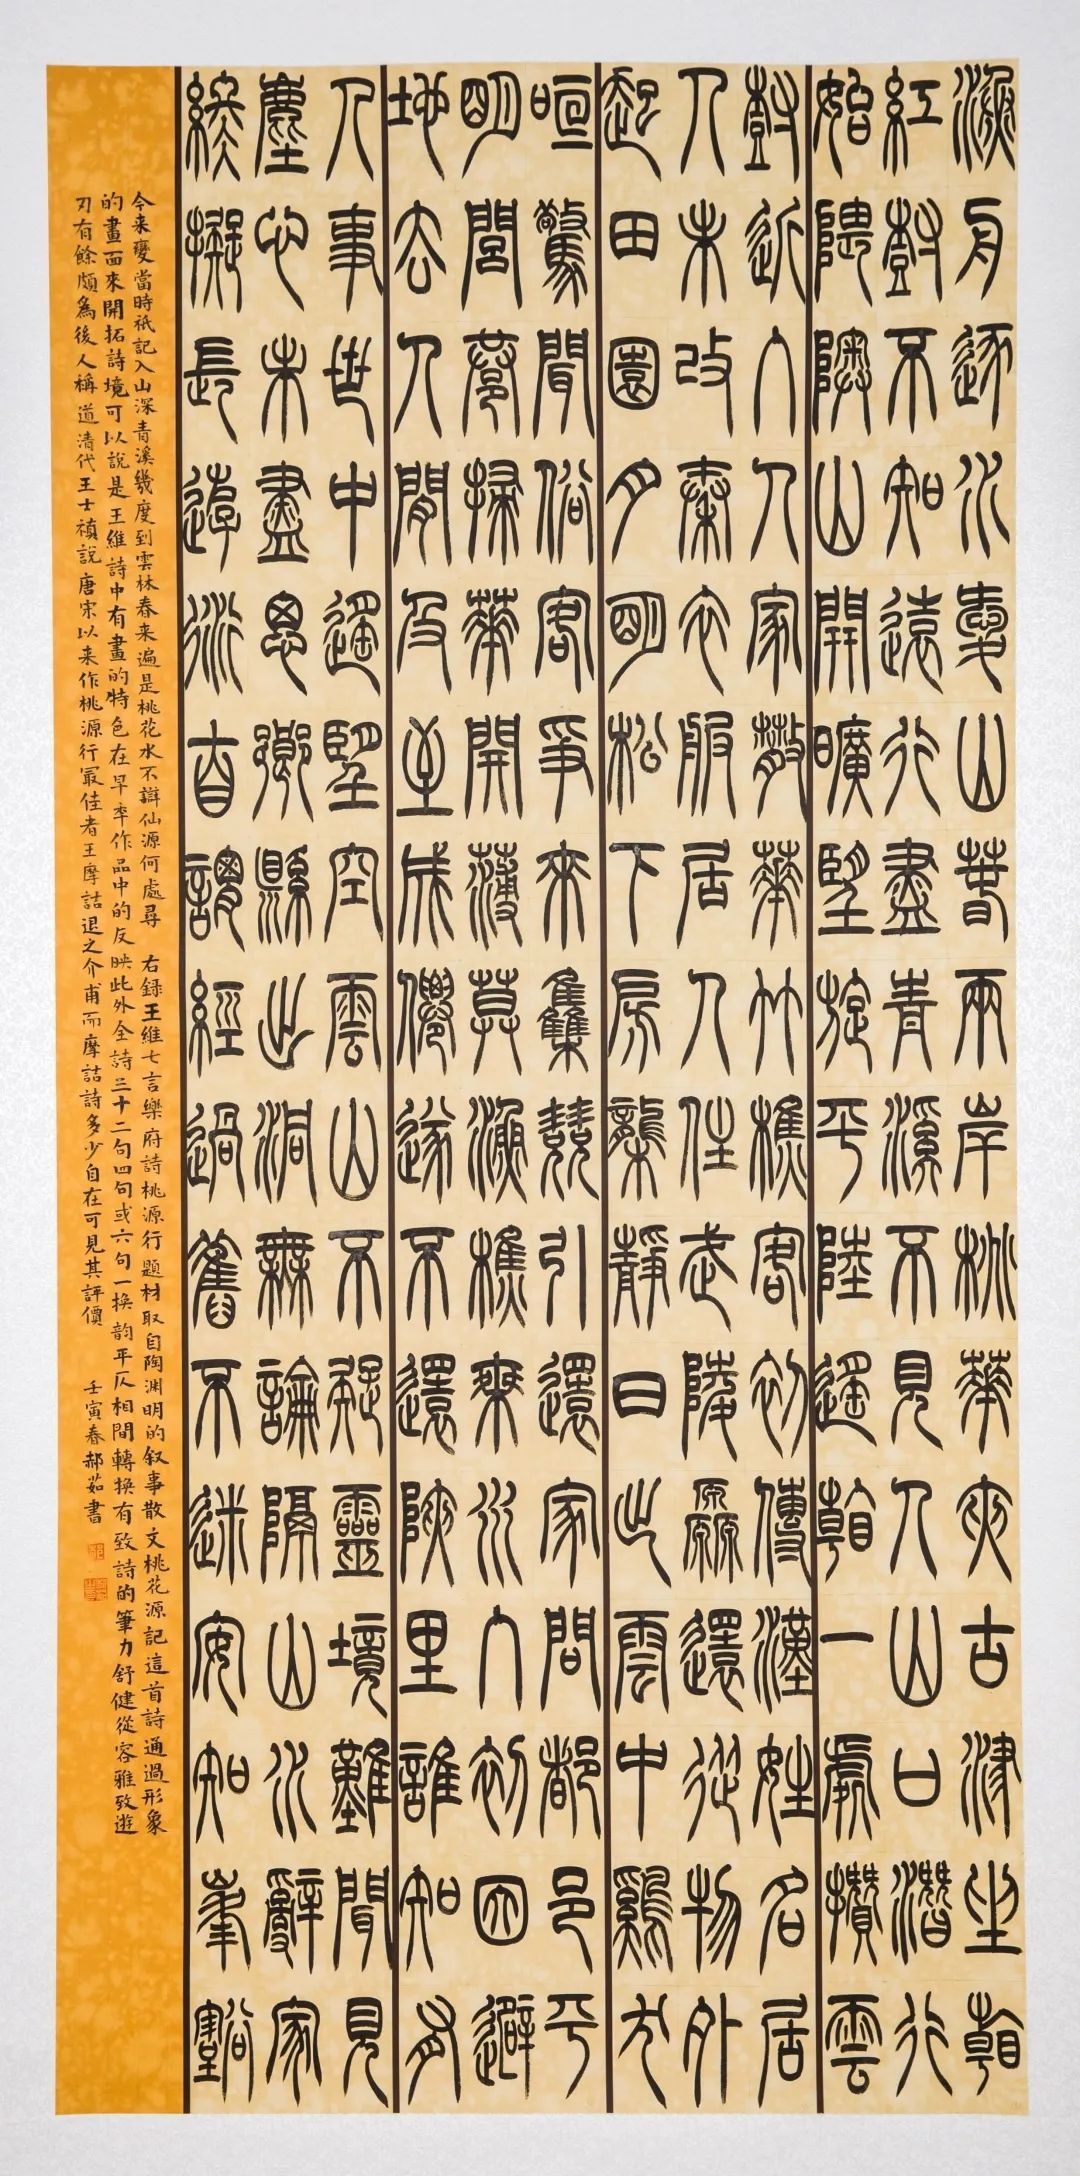 漁舟逐水愛山春兩岸桃華夾古津坐看
紅樹不知遠行盡青溪不見人山口潛行
始隈隩山開曠望旋平陸遙看一處攢雲
樹近入人家散華竹樵客初傳漢姓名居
人未改秦衣服居人住武陵源還從物外
起田園月明松下房櫳靜日出雲中雞犬
喧驚聞俗客爭來雧競引還家問都邑平
明閭巷掃華開薄莫漁樵乘水入初因避
地去人間及至成僊遂不還陝里誰知有
人事世中遙望空雲山不疑靈境難聞見
塵心未盡思鄉縣出洞無論隔山水辭家
終擬長遊衍自謂經過舊不迷安知峯壑
今来變當時祇記入山深青溪幾度到雲林春来遍是桃花水不辯仙源何處尋 右録王維七言樂府詩桃源行題材取自陶渊明的叙事散文桃花源記這首詩通過形象
的畫面來開拓詩境可以說是王維詩中有畫的特色在早年作品中的反映此外全詩三十二句四句或六句一换韵平仄相間轉换有致詩的筆力舒健從容雅致遊
刃有餘頗為後人稱道清代王士禎說唐宋以来作桃源行最佳者王摩詰退之介甫而摩詰詩多少自在可見其評價 壬寅春郝茹書